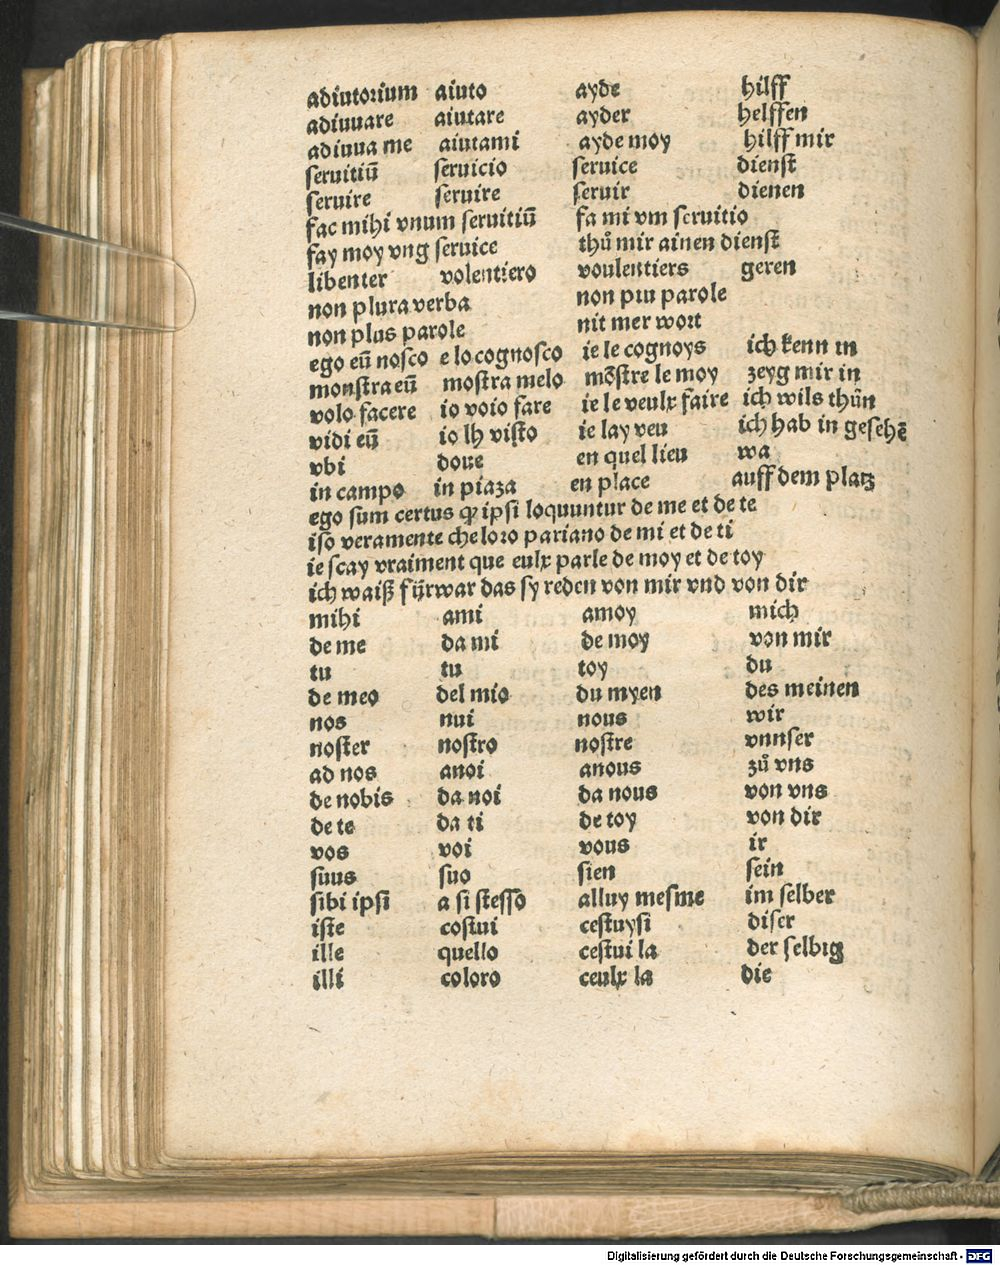 adiutorium aiuto ayde hilff
adiuuare aiutare ayder helffen
adiuua me aiutami ayde moy hilff mir
seruitiū seruicio seruice dienst
seruire seruire seruir dienen
fac mihi vnum seruitiū fa mi vm seruitio
fay moy vng seruice thů mir ainen dienst
libenter volentiero voulentiers geren
non plura verba non piu parole
non plus parole nit mer wort
ego eū nosco e lo cognosco ie le cognoys ich kenn in
monstra eū mostra melo mōstre le moy zeyg mir in
volo facere io voio fare ie le veulx faire ich wils thůn
vidi eū io lh visto ie lay veu ich hab in gesehē
vbi doue en quel lieu wa
in campo in piaza en place auff dem platz
ego sum certus ꝙ ipsi loquuntur de me et de te
iso veramente che loro pariano de mi et de ti
ie scay vraiment que eulx parle de moy et de toy
ich waiß fürwar das sy reden von mir vnd von dir
mihi ami amoy mich
de me da mi de moy von mir
tu tu toy du
de meo del mio du myen des meinen
nos nui nous wir
noster nostro nostre vnnser
ad nos anoi anous zů vns
de nobis da noi da nous von vns
de te da ti de toy von dir
vos voi vous ir
suus suo sien sein
sibi ipsi a si stesso alluy mesme im selber
iste costui cestuysi diser
ille quello cestui la der selbig
illi coloro ceulx la die
Digitalisierung gefördert durch die Deutsche Forschungsgemeinschaft - DFG